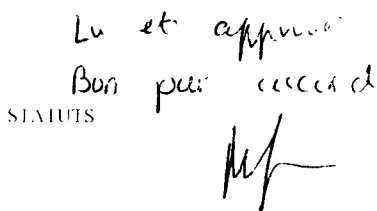 Lu et approuvé
Bon pour accord
STATUTS